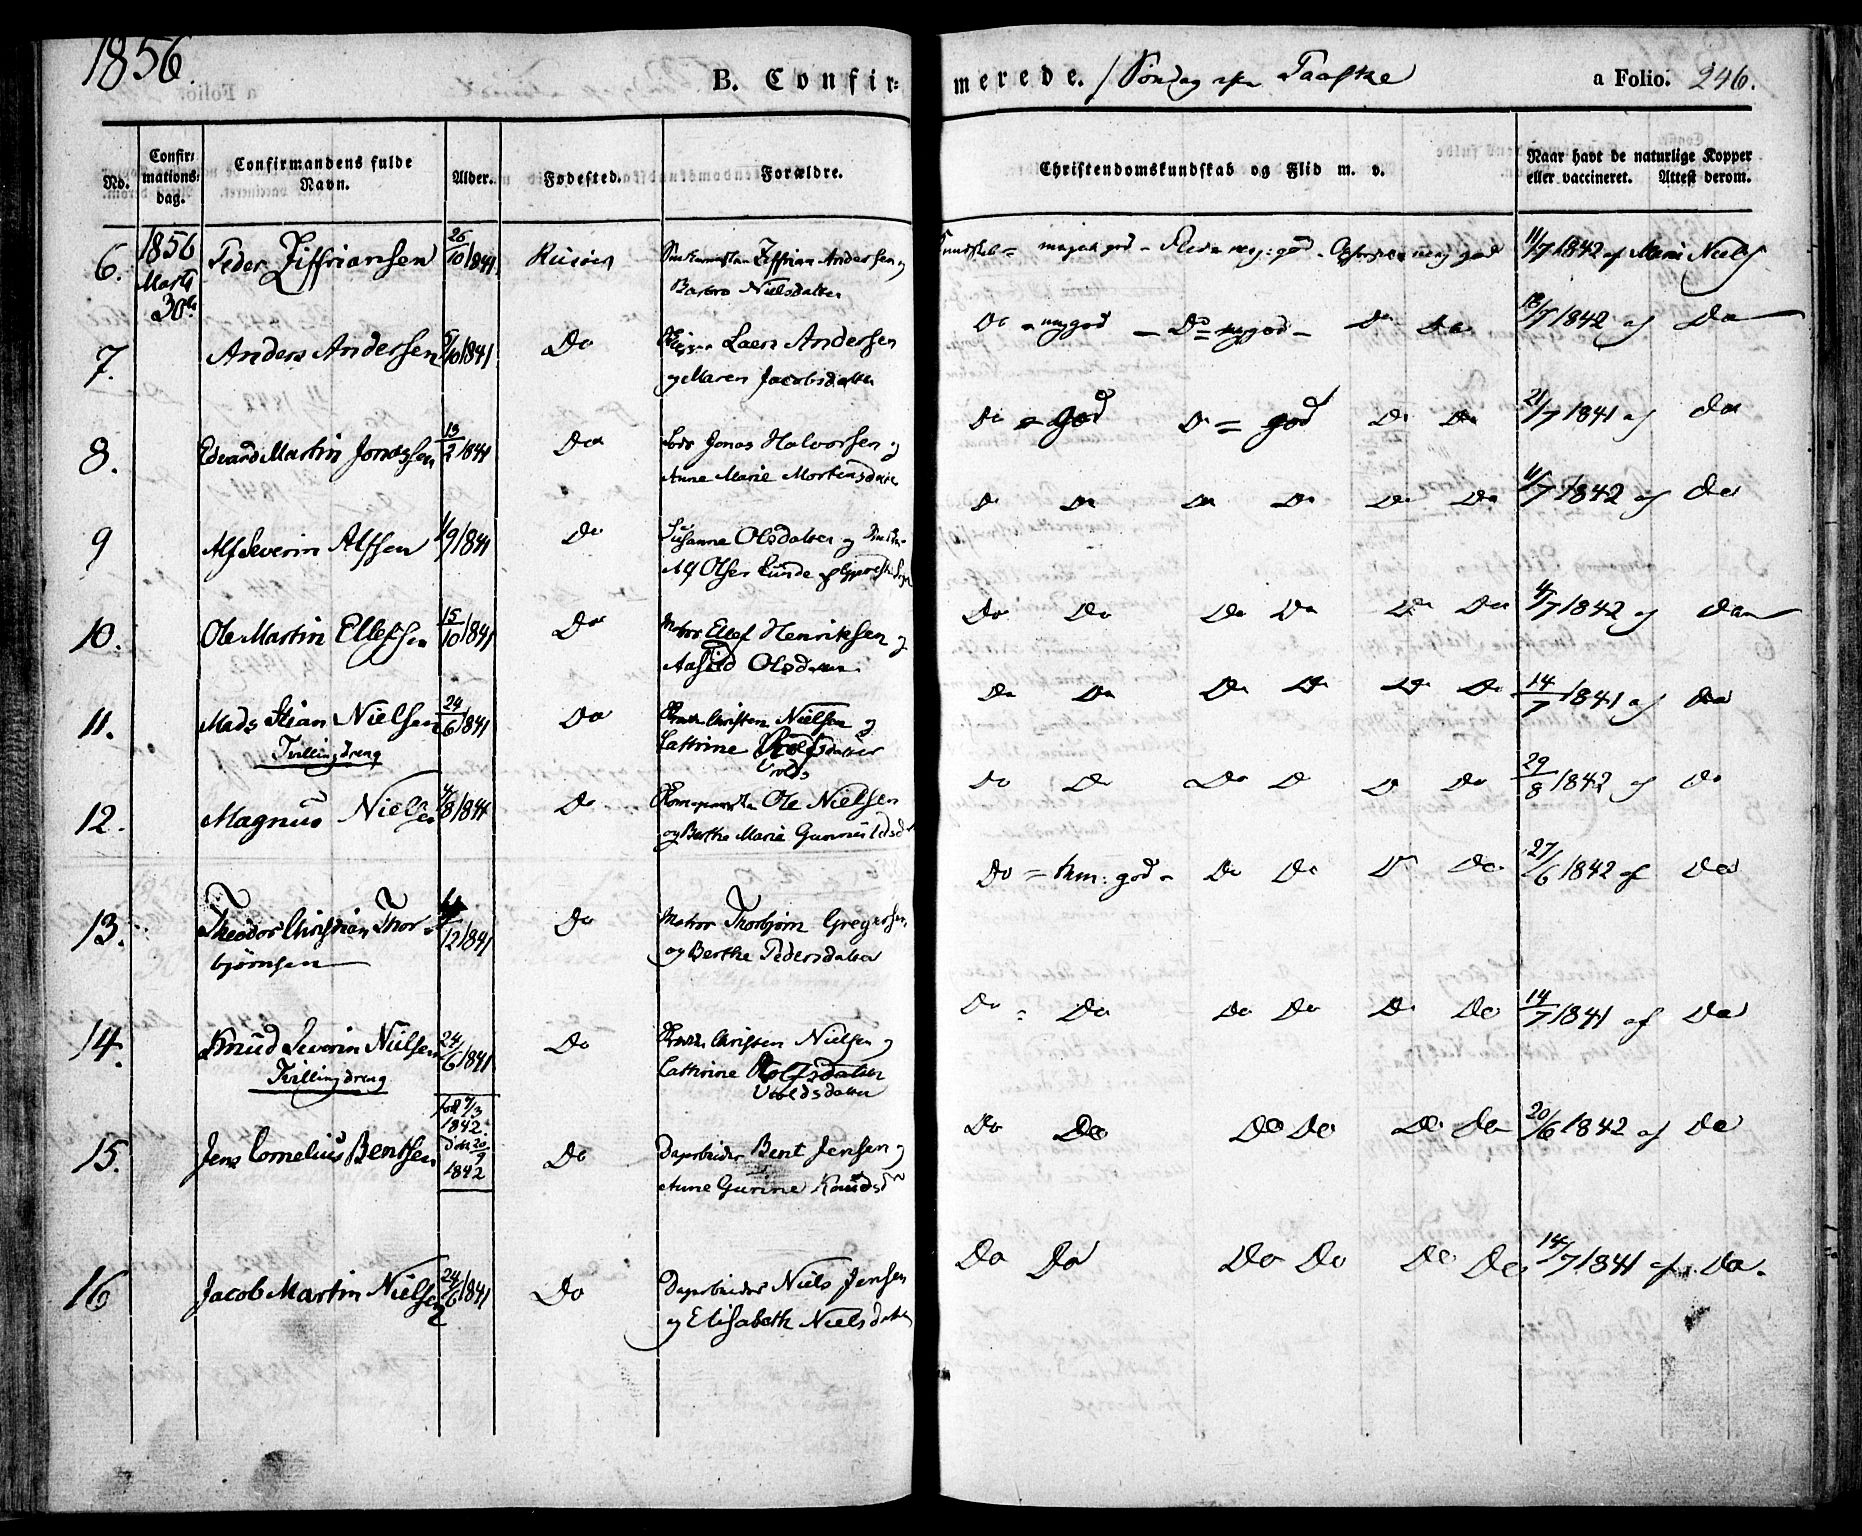 1856.
B. Confir-
merede. / Søndag efter Paaske
a Folio. 246.
No.
Confir-
mations-
dag.
Confirmandens fulde
Navn.
Alder.
Fødested.
Forældre.
Christendomskundskab og Flid m. v.
Naar havt de naturlige Kopper
eller vaccineret. Attest derom.
6. 1856 Peder Ziffriansen 26/10 1841 Ziffrian Andersen og Kundskab = meget god - Flid = meg: god - meg god 11/7 1842 af Marie Niels
Marts
30te
Barbro Nielsdatter
7. Anders Andersen /10 1841 Do Laers Andersen Do = meg god - Do = meg god - Do Do 18/7 1842 af Do
og Maren Jacobsdatter
8. Edvard Martin Jonassen 13/2 1841 Do Lods Jonas Halvorsen og Do = god Do = god Do Do 21/7 1841 af Do
Anne Marie Mortensdatter
9 Alf Severin Alfsen 1/9 1841 Do Susanne Olsdatter og Do Do Do Do Do Do 11/7 1842 af Do
Alf Olsen Lunde af
10. Ole Martin Ellefsen 15/10 1841 Do Matros Ellef Henriksen og Do Do Do Do Do Do 4/7 1842 af Do
Aasild Olsdatter
11. Mads Stian Nielsen 24/6 1841 Do Christen Nielsen og Do Do Do Do Do Do 14/7 1841 af Do
Tvillingdreng
Cathrine Rolfsdatter
Urolds
12. Magnus Nielsen /8 1841 Do Ole Nielsen Do Do Do Do Do Do 29/8 1842 af Do
og Berthe Marie Gunnuldsd
13. Theodor Christian Thor- /12 1841 Do Matros Thorbjørn Gregersen Do = tem: god - Do Do Do Do 27/6 1842 af Do
bjørnsen
og Berthe Pedersdatter
14. Knud Severin Nielsen 24/6 1841 Do Christen Nielsen og Do = Do Do Do Do Do 14/7 1841 af Do
Tvillingdreng
Cathrine Rolfsdatter
Uroldsdatter
15. Jens Cornelius Bentsen fød 9/3 1842. Do Bent Jensen og Do Do Do Do Do Do 20/6 1842 af Do
1842
Anne Gurine Knudsd
16 Jacob Martin Nielsen 24/6 1841 Do Niels Jensen Do Do Do Do Do Do 14/7 1841 af Do.
og Elisabeth Nielsdatter